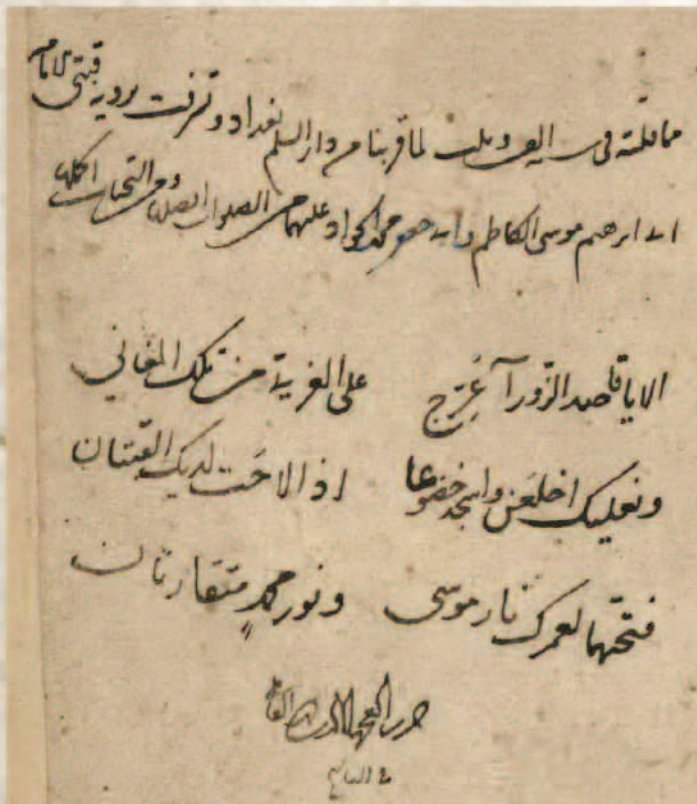 مما قلته في سنة الف و لما قربنا من دار السلم بغداد وتشرفت برؤية قبتي الامامين
ابى ابرهيم موسى الكاظم وابى جعفر محمد الجواد عليهما من الصلوات افضلها ومن التحيات اكملها
الا يا قاصد الزورآ عرّج على الغربي من تلك المغاني
ونعليك اخلعن واسجد خضوعا اذا لاحت لديك القبتان
فتحتهما لعمرك نار موسى ونور محمدٍ متقارنان